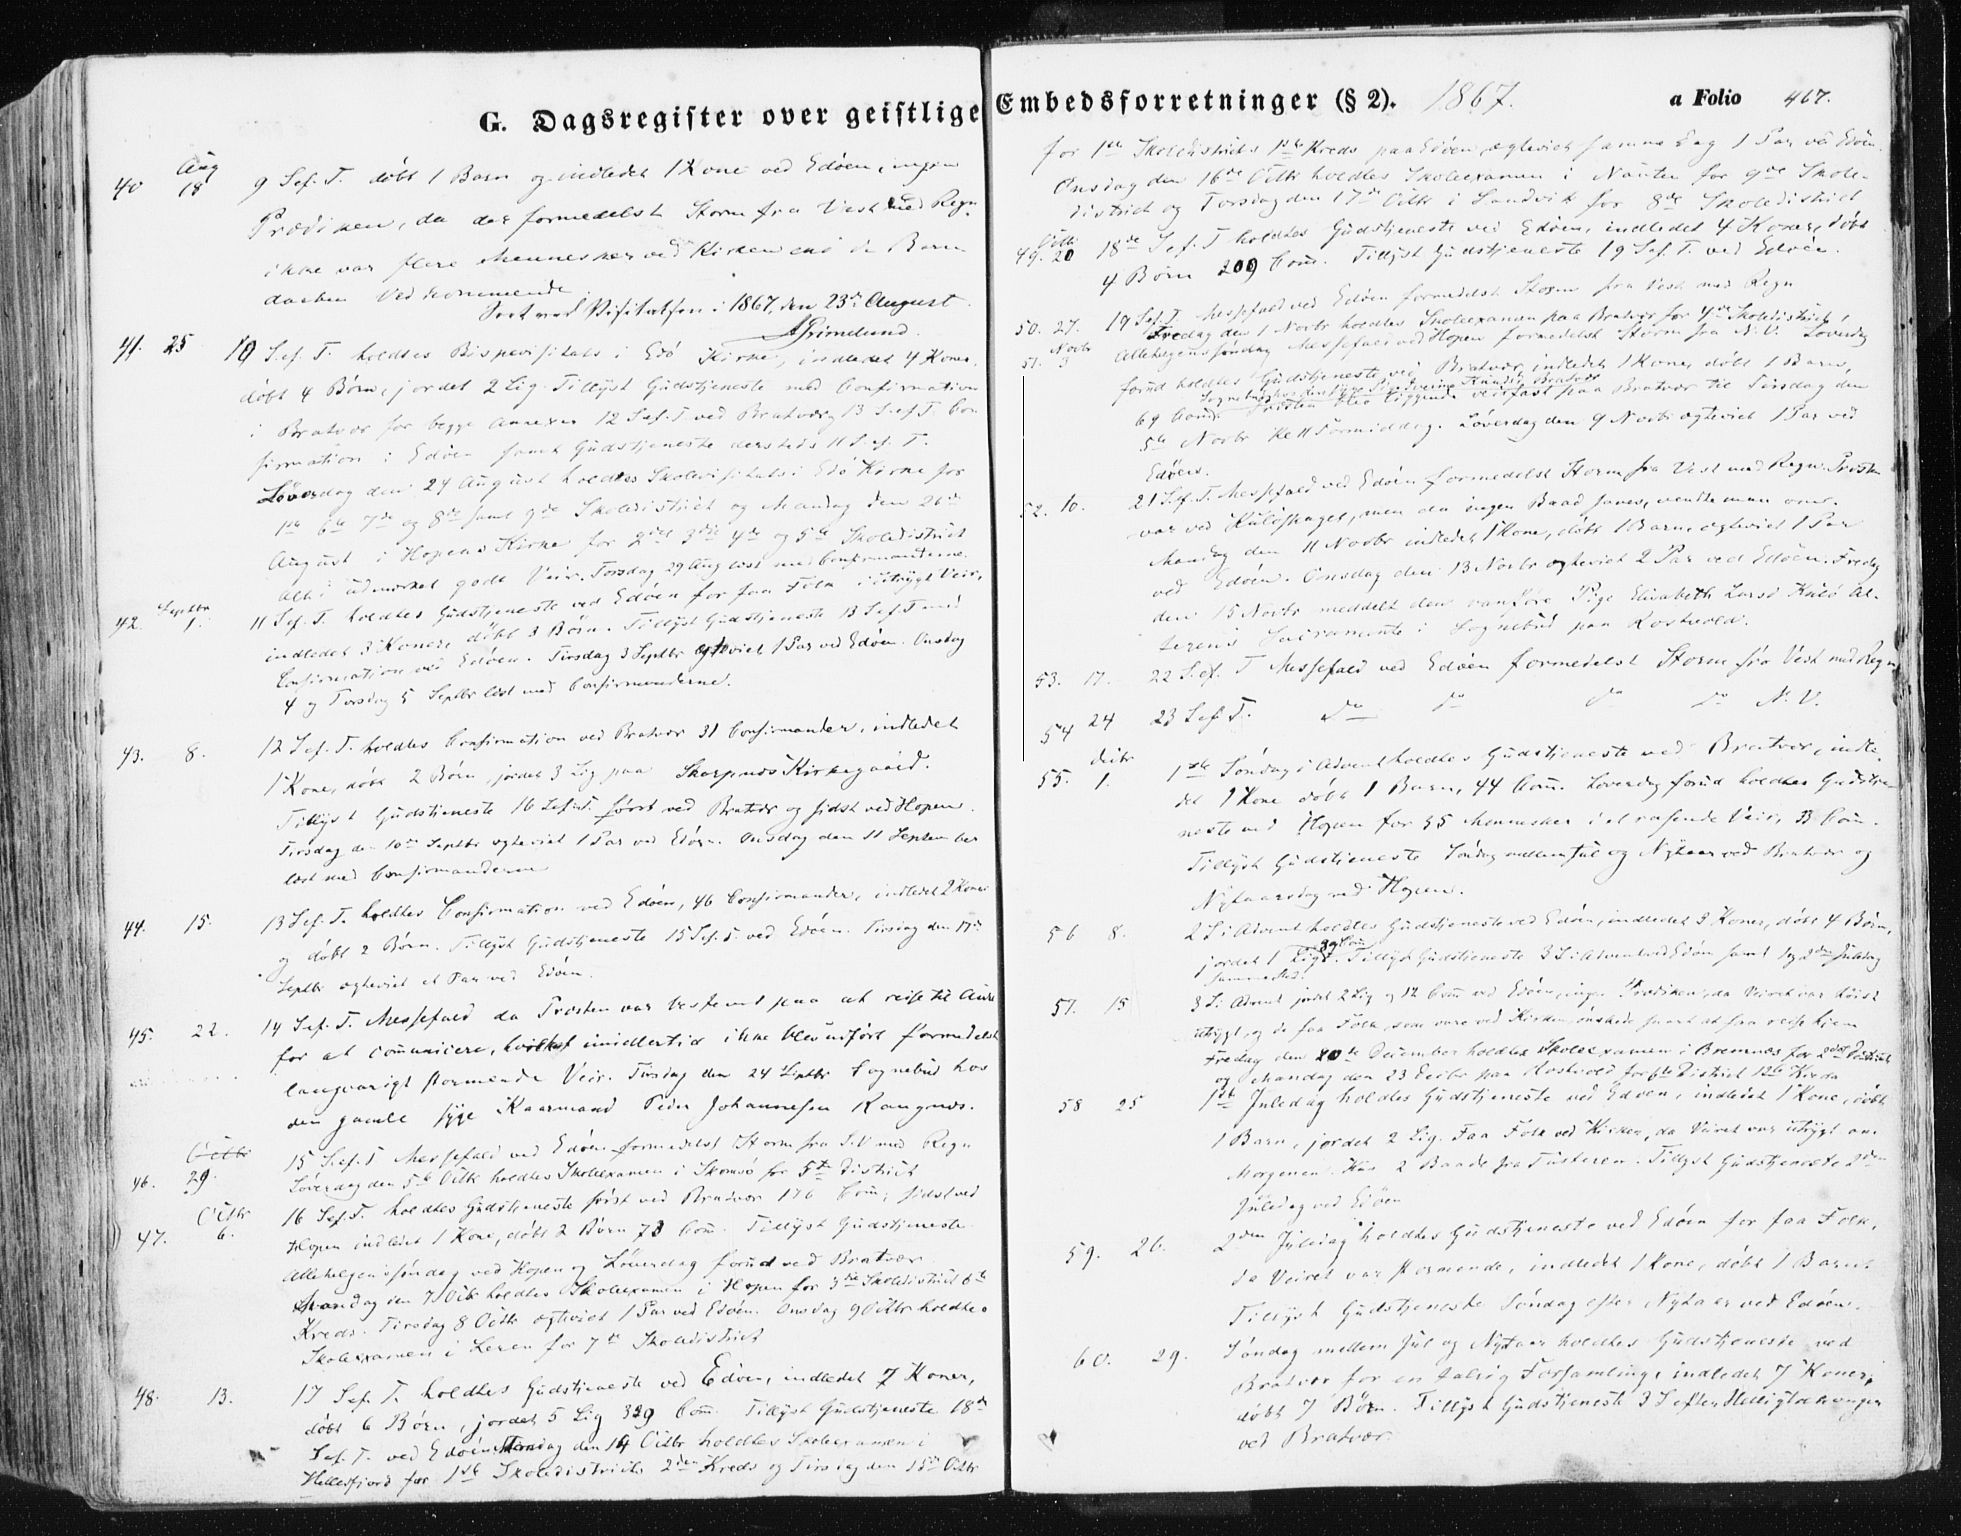 G. Dagsregister over geistlige Embedsforretninger (§ 2). 1867. a Folio 467.
40 Aug 18 9 S. ef. T. döbt 1 Barn og indledet 1 Kone ved Edöen, ingen
Prædiken, da der formedelst Storm fra Vest med Regn
ikke var flere Mennesker ved Kirken end de Barn
daaben Vedkommende.
Seet ved Visitatsen i 1867, den 23de August.
AGrimelund.
41. 25 10 S. ef. T. holdtes Bispevisitats i Edö Kirke, indledet 4 Koner,
döbt 4 Börn, jordet 2 Lig. Tillyst Gudstjeneste med Confirmation
i Bratvær for begge Annexer 12 S. ef. T. ved Bratvær og 13 S. ef. T. Con
firmation i Edöen samt Gudstjeneste dersteds 11 S. ef. T.
Löverdag den 24 August holdtes Skolevisitats i Edö Kirke for
1ste 6te 7de og 8de samt 9de Skoledistrict og Mandag den 26de
August i Hopens Kirke for 2det 3die 4de og 5te Skoledistrict
Alt i udmærket godt Veir. Torsdag 29 Aug læst med Confirmanderne.
42. Septbr 1. 11 S. ef. T. holdtes Gudstjeneste ved Edöen for faa Folk i utrygt Veir,
indledet 3 Koner, döbt 3 Börn. Tillyst Gudstjeneste 13 S. ef. T. med
Confirmation ved Edöen. Tirsdag 3 Septbr ægteviet 1 Par ved Edöen. Onsdag
4 og Torsdag 5 Septbr læst med Confirmanderne.
43. 8. 12 S. ef. T. holdtes Confirmation ved Bratvær 31 Confirmander, indledet
1 Kone, döbt 2 Börn, jordet 3 Lig paa Skarpnæs Kirkegaard.
Tillyst Gudstjeneste 16 S. ef. T. först ved Bratvær og sidst ved Hopen.
Tirsdag den 10de Septbr ægteviet 1 Par ved Edöen. Onsdag den 11 September
læst med Confirmanderne
44. 15. 13 S. ef. T. holdtes Confirmation ved Edöen, 46 Confirmander, indledet 2 Koner
og döbt 2 Börn. Tillyst Gudstjeneste 15 S. ef. T. ved Edöen. Tirsdag den 17de
Septbr ægteviet et Par ved Edöen.
45. 22. 14 S. ef. T. Messefald da Præsten var bestemt paa at reise til Aure
for at communicere, hvilket imidlertid ikke blev udfört formedelst
langvarigt stormende Veir. Tirsdag den 24 Septbr Sognebud hos
den gamle syge Kaarmand Peder Johannesen Rangnæs.
46. 29. 15 S. ef. T. Messefald ved Edöen formedelst Storm fra S.V. med Regn
Löverdag den 5te Octbr holdtes Skoleexamen i Skomsö for 5te District
47. Octbr 6. 16 S. ef. T. holdtes Gudstjeneste först ved Bratvær 176 Com, sidst ved
Hopen indledet 1 Kone, döbt 2 Börn 73 Com. Tillyst Gudstjeneste
Allehelgenssöndag ved Hopen og Löverdag forud ved Bratvær
Mandag den 7 Octbr holdtes Skoleexamen i Hopen for 3die Skoledistrict 6te
Kreds. Tirsdag 8 Octbr ægteviet 1 Par ved Edöen. Onsdag 9 Octbr holdtes
Skoleexamen i Leren for 7de Skoledistrict
48. 13. 17 S. ef. T. holdtes Gudstjeneste ved Edöen, indledet 7 Koner,
döbt 6 Börn, jordet 5 Lig 329 Com. Tillyst Gudstjeneste 18de
S. ef. T. ved Edöen. Mandag den 14 Octbr holdtes Skoleexamen i
Hellesfjord for 1ste Skoledistricts 2den Kreds og Tirsdag den 15de Octbr
for 1ste Skoledistricts 1ste Kreds paa Edöen, ægteviet samme Dag 1 Par ved Edöen.
Onsdag den 16de Octbr holdtes Skoleexamen i Nauten for 9de Skole-
district og Torsdag den 17de Octbr i Sandvik for 8de Skoledistrict
49. Octbr 20 18de S. ef. T. holdtes Gudstjeneste ved Edöen, indledet 4 Koner, döbt
4 Börn 209 Com. Tillyst Gudstjeneste 19 S. ef. T. ved Edöen.
50. 27. 19 S. ef. T. Messefald ved Edöen formedelst Storm fra Vest med Regn
Fredag den 1 Novbr holdtes Skoleexamen paa Bratvær for 4de Skoledistrict,
51. Novbr 3 Allehelgenssöndag Messefald ved Hopen formedelst Storm fra N.V. Löverdag
forud holdtes Gudstjeneste ved Bratvær, indledet 1 Kone, döbt 1 Barn,
69 Com. Præsten blev liggende veirfast paa Bratvær til Tirsdag den
5te Novbr Kl 11 Formiddag. Löverdag den 9 Novbr ægteviet 1 Par ved
Edöen.
52. 10. 21 S. ef. T. Messefald ved Edöen formedelst Storm fra Vest med Regn. Præsten
var ved Kulöhaget, men da ingen Baad saaes, vendte man om.
Mandag den 11 Novbr indledet 1 Kone, döbt 1 Barn, ægteviet 1 Par
ved Edöen. Onsdag den 13 Novbr ægteviet 2 Par ved Edöen. Fredag
den 15 Novbr meddelt den vanföre Pige Elisabeth Larsd Kulö Al-
terens Sacramente i Sognebud paa Rostvold.
53. 17. 22 S. ef. T Messefald ved Edöen formedelst Storm fra Vest med Regn
54 24 23 S. ef. T. do do do do N. V.
55. Decbr 1. 1ste Söndag i Advent holdtes Gudstjeneste ved Bratvær, indle-
det 1 Kone döbt 1 Barn, 44 Com. Löverdag forud holdtes Gudstje-
neste ved Hopen for 35 Mennesker i et rasende Veir, 13 Com.
Tillyst Gudstjeneste Söndag mellem Jul og Nytaar ved Bratvær og
Nytaarsdag ved Hopen.
56 8. 2 S. i Advent holdtes Gudstjeneste ved Edöen, indledet 3 Koner, döbt 4 Börn,
jordet 1 Lig. Tillyst Gudstjeneste 3 S. i Advent ved Edöen samt 1 og 2den Juledag
sammesteds.
57. 15 3 S. i Advent jordet 2 Lig og 12 Com ved Edöen, ingen Prædiken, da Veiret var höist
utrygt, og de faa Folk, som vare ved Kirken önskede snart at faa reise hjem
Fredag den 20de December holdtes Skoleexamen i Bremnæs for 2det District
og Mandag den 23 Decbr paa Rostvold for 6te District 1ste Kreds
58 25 1ste Juledag holdtes Gudstjeneste ved Edöen, indledet 1 Kone, döbt
1 Barn, jordet 2 Lig. Faa Folk ved Kirken, da Veiret var utrygt om
Morgenen. Kun 2 Baade fra Tusteren. Tillyst Gudstjeneste 2den
Juledag ved Edöen
59. 26. 2den Juledag holdtes Gudstjeneste ved Edöen for faa Folk,
da Veiret var stormende, indledet 1 Kone, döbt 1 Barn
Tillyst Gudstjeneste Söndag efter Nytaar ved Edöen.
60. 29. Söndag mellem Jul og Nytaar holdtes Gudstjeneste ved
Bratvær for en talrig Forsamling, indledet 7 Koner,
döbt 7 Börn. Tillyst Gudstjeneste 3 S. efter Helligtrekonger
ved Bratvær